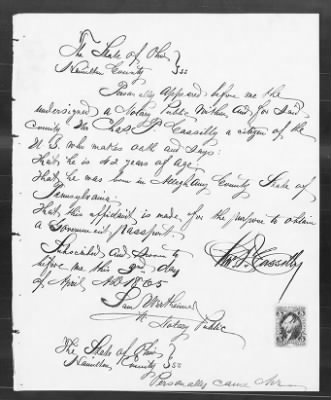 The State of Ohio }
Hamilton County } SS
Personally Appeared before me the
undersigned a Notary Public Within And for Said
County Chas P Cassilly a citizen of the
U. S. who makes oath and Says:
That he is 42 years of Age,
That he was born in Alleghany County State of
Pennsylvania
That this affidavit is made for the purpose to obtain
a Government passport.
Subscribed And Sworn to
before me this 3rd day
of April AD 1865
Cassilly
Sam
Notary Public
The State of Ohio }
Hamilton County } SS
Personally came